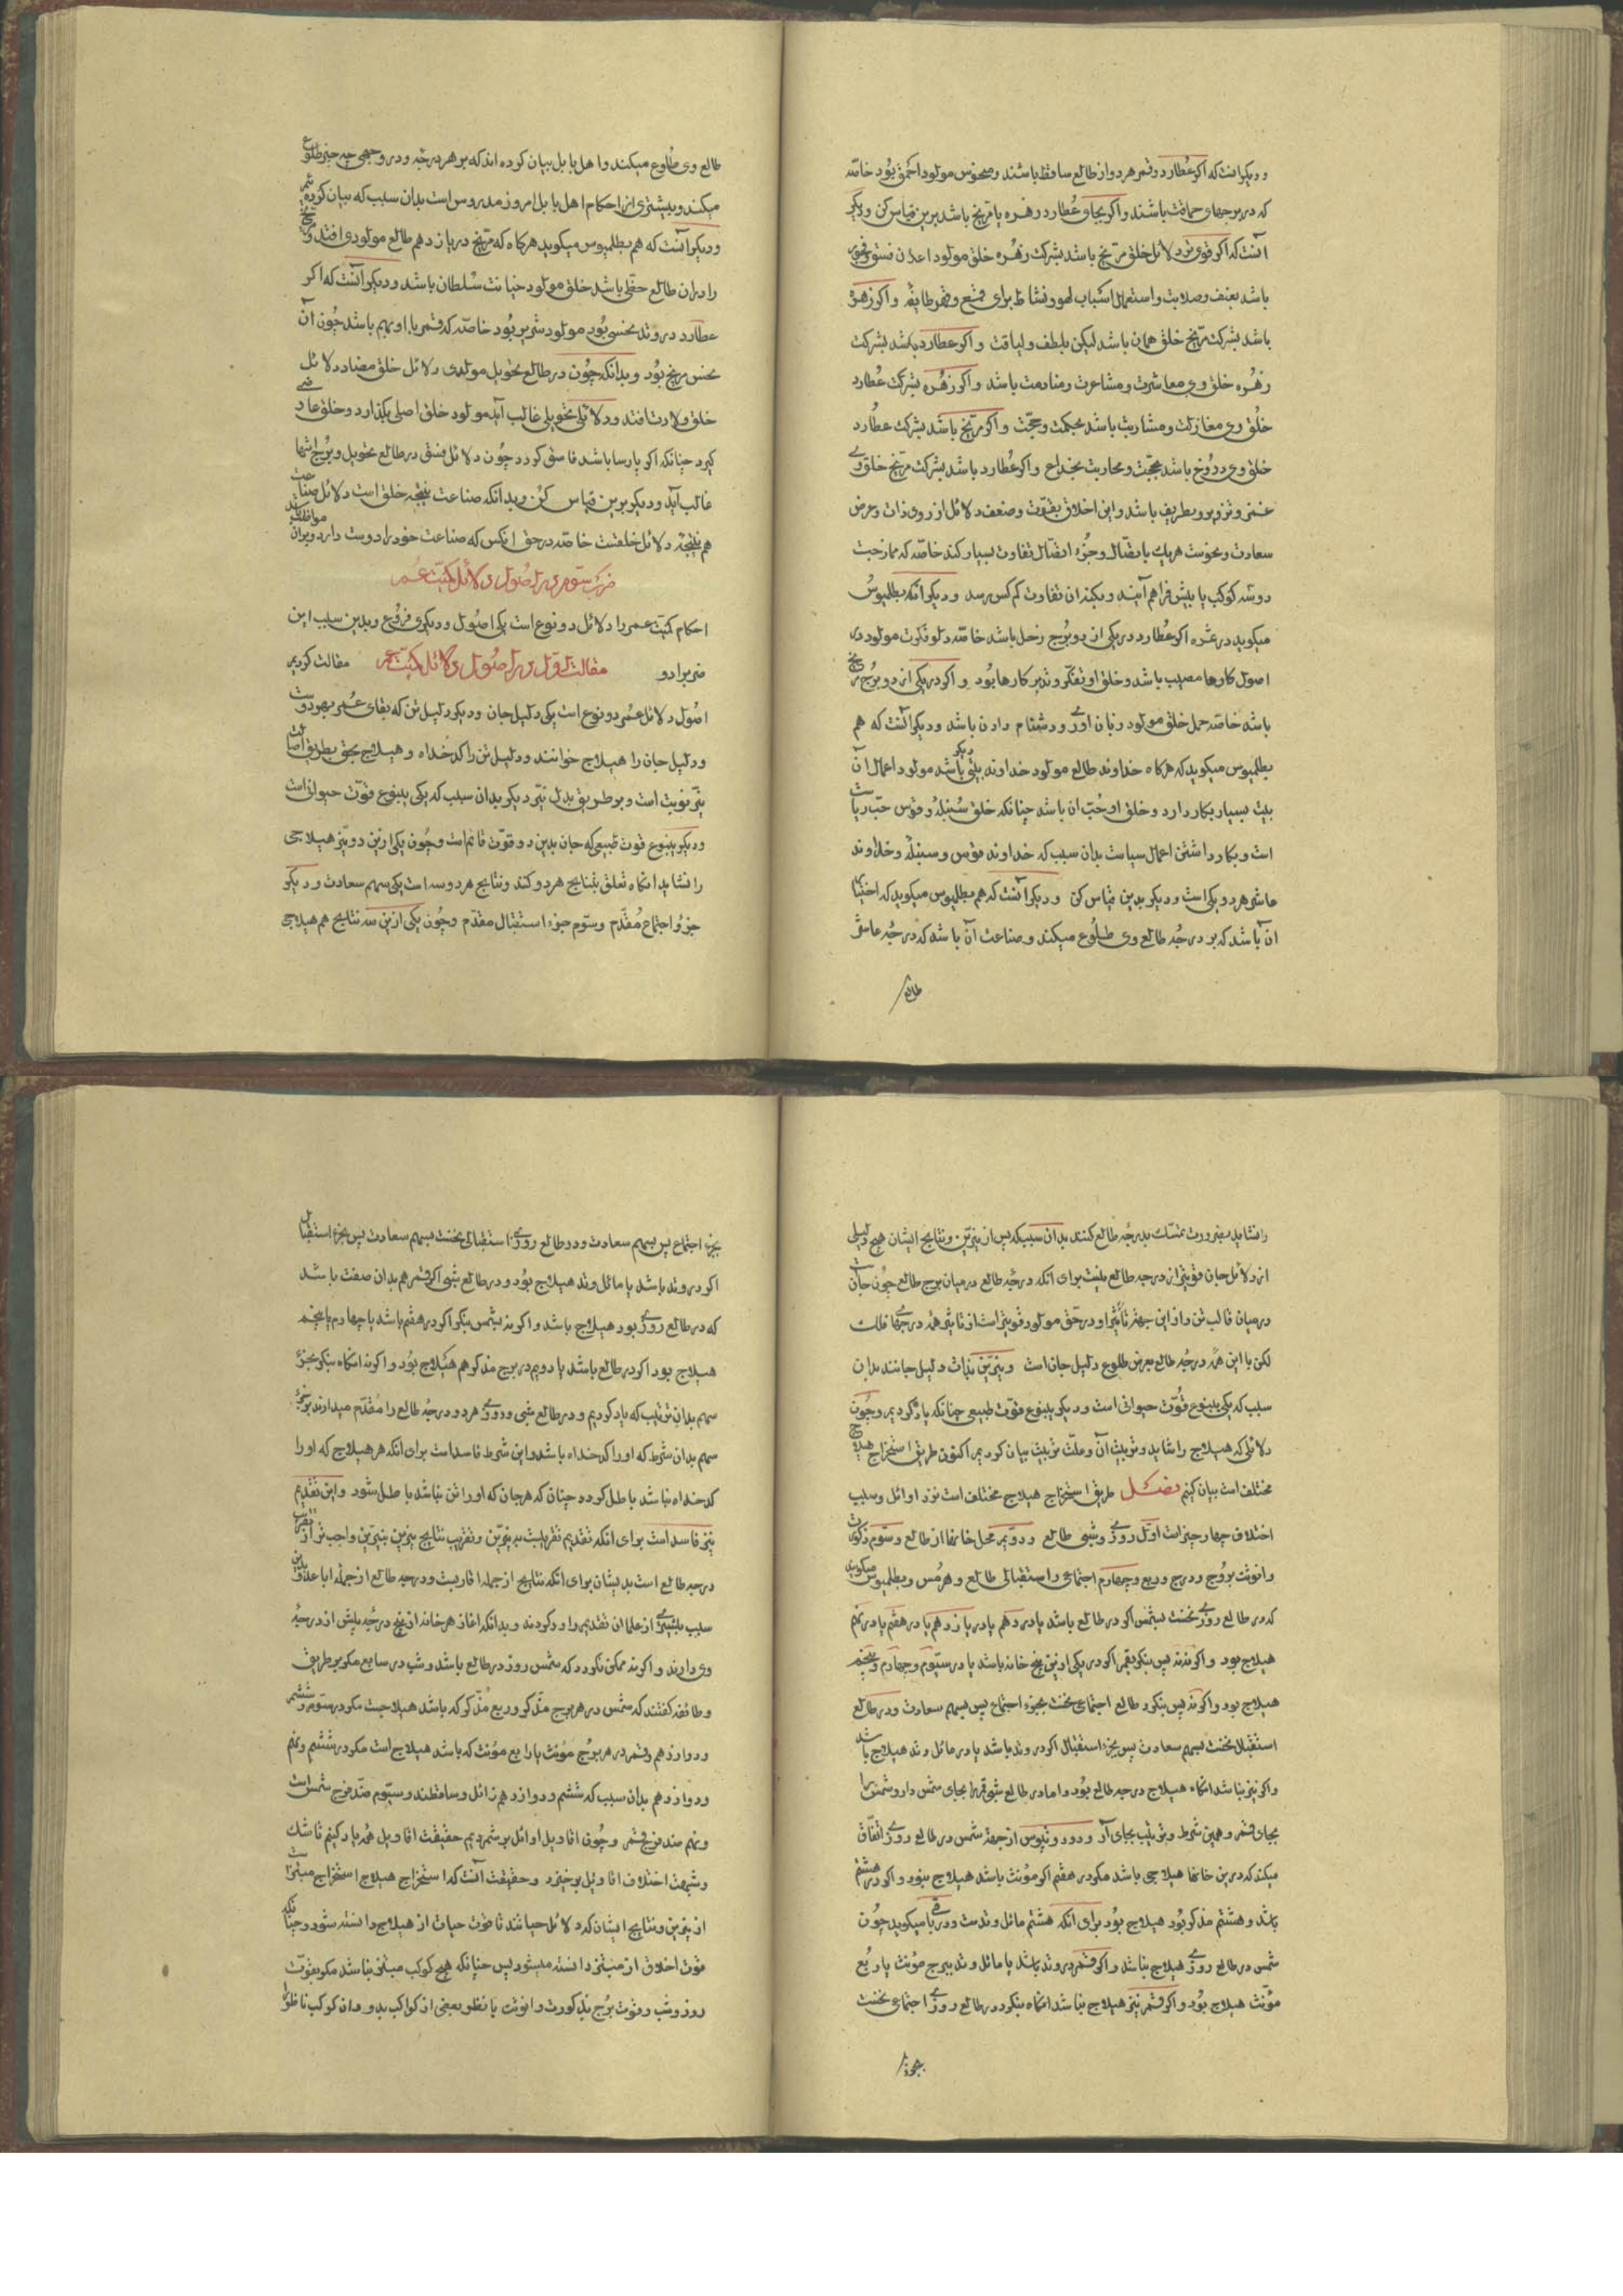 ودیکر انست که اکر عطارد وقمر هر دو از طالع ساقط باشند ومنحوس مولود احمق بود خاصه
که در برجهای حماقت باشند واکر بجای عطارد زهره یا مریخ باشد برین قیاس کن ودیکر
آنست که اکر قوی تر دلائل خلق مریخ باشد بشرکت زهره خلق مولود اعلان فسق وفجور
باشد بعنف وصلابت واستعمال اسباب لهو ونشاط برای قمع وقهر طایفه واکر زهره
باشد بشرکت مریخ خلق همان باشد لیکن بلطف ولباقت واکر عطارد باشد بشرکت
زهره خلق وی معاشرت ومشاعرت ومنادمت باشد واکر زهره بشرکت عطارد
خلق وی مغازلت ومشاربت باشد بحکمت وحجت واکر مریخ باشد بشرکت عطارد
خلق وی دروغ باشد بحجت ومحاربت بخداع واکر عطارد باشد بشرکت مریخ خلق وی
غمز وتزویر وبطریف باشد واین اخلاق بقوت وضعف دلائل از روی ذات وعرض
سعادت ونحوست هر یک باتصال وجزء اتصال تفاوت بسیار کند خاصه که ممازجت
دو سه کوکب یا بیش فراهم آیند وبکنه ان تفاوت کم کس رسد ودیکر آنکه بطلمیوس
میکوید در ثمره اکر عطارد در یکی از دو برج زحل باشد خاصه دلو فکرت مولود در
اصول کارها مصیب باشد وخلق او تفکر وتدبیر کارها بود واکر در یکی از دو برج مریخ
باشد خاصه حمل خلق مولود زبان اوری ودشنام دادن باشد ودیکر آنست که هم
بطلمیوس میکوید که هرکاه خداوند طالع مولود خداوند بیتی دیکر باشد مولود اعمال آن
بیت بسیار بکار دارد وخلق او حب ان باشد چنانکه خلق سنبله وقوس حب ریاست
است وبکار داشتن اعمال سیاست بدان سبب که خداوند قوس وسنبله وخداوند
عاشر هر دو یکی است ودیکر بدین قیاس کن ودیکر آنست که هم بطلمیوس میکوید که اختیار
ان باشد که بر درجه طالع وی طلوع میکند وصناعت آن باشد که درجه عاشر
طالع
طالع وی طلوع میکند واهل بابل بیان کرده اند که بر هر درجه ودر وجهی چه چیز طلوع
میکند وبیشتری از احکام اهل بابل امروز مدروس است بدان سبب که بیان کرده
ودیکر آنست که هم بطلمیوس میکوید هرکاه که مریخ در یازدهم طالع مولودی افتد
را دران طالع حظی باشد خلق مولود خیانت سلطان باشد ودیکر آنست که اکر
عطارد در وتد بنحسی بود مولود شریر بود خاصه که قمر با او بهم باشد چون آن
نحس مریخ بود وبدانکه چون در طالع تحویل مولدی دلائل خلق مضاد دلائل
خلق ولادت افتد ودلائل تحویلی غالب آید مولود خلق اصلی بکذارد وخلق عارضی
کیرد چنانکه اکر پارسا باشد فاسق کردد چون دلائل فسق در طالع تحویل وبرج انتها
غالب آید ودیکر برین قیاس کن وبدانکه صناعت نتیجه خلق است دلائل صناعت
هم نتیجه دلائل خلقست خاصه در حق انکس که صناعت خود را دوست دارد وبران مواظب باشد
ضرب سوم در اصول دلائل کمیت عمر
احکام کمیت عمر را دلائل دو نوع است یکی اصول ودیکری فروع وبدین سبب این
ضرب را دو مقالت کردیم مقالت اول در اصول دلائل کمیت عمر
اصول دلائل عمر دو نوع است یکی دلیل جان ودیکر دلیل تن که بقای عمر بهر دوست
ودلیل جان را هیلاج خوانند ودلیل تن را کدخداه وهیلاج بحق بطریق اصالت
نیر نوبت است وبر طریق بدل نیر دیکر بدان سبب که یکی ینبوع قوت حیوانی است
ودیکر ینبوع قوت طبیعی که جان بدین دو قوت قائم است وچون یکی ازین دو نیز هیلاجی
را نشاید انکاه تعلق بنتایج هر دو کند ونتایج هر دو سه است یکی سهم سعادت ودیکر
جزو اجتماع مقدم وسوم جزء استقبال مقدم وچون یکی ازین سه نتایج هم هیلاجی
را نشاید بضرورت تمسک بدرجه طالع کنند بدان سبب که پس از نیرین ونتایج ایشان هیچ دلیلی
از دلائل جان قوی تر از درجه طالع نیست برای انکه درجه طالع در میان برج طالع چون جانست
در میان قالب تن وازین جهت تاثیر او در حق مولود قوی تر است از تاثیر همه درجهای فلک
لکن با این همه درجه طالع بعرض طلوع دلیل جان است ونیرین بذات دلیل جانند بدان
سبب که یکی ینبوع قوت حیوانی است ودیکر ینبوع قوت طبیعی چنانکه یاد کردیم وچون
دلائلی که هیلاج را شاید وترتیب آن وعلت ترتیب بیان کردیم اکنون طریق استخراج هیلاج
مختلف است بیان کنیم فصل طریق استخراج هیلاج مختلف است نزد اوائل وسبب
اختلاف چهار چیز است اول روزی وشبی طالع ودویم محل خانها از طالع وسوم ذکورت
وانوثت بروج ودرج وربع وچهارم اجتماعی واستقبالی طالع وهرمس وبطلمیوس میکویند
که در طالع روزی نخست بشمس اکر در طالع باشد یا در دهم یا در یازدهم یا در هفتم یا در نهم
هیلاج بود واکر نه پس بنکر بقمر اکر در یکی ازین پنج خانه باشد یا در سیوم وچهارم وپنجم
هیلاج بود واکر نه پس بنکر در طالع اجتماعی نخست بجزء اجتماع پس بسهم سعادت ودر طالع
استقبال نخست بسهم سعادت پس بجزء استقبال اکر در وتد باشد یا در مائل وتد هیلاج باشد
واکر نیز نباشد انکاه هیلاج درجه طالع بود واما در طالع شبی قمر را بجای شمس دار وشمس را
بجای قمر وهمین شرط وترتیب بجای آر ودرونیوس از جهت شمس در طالع روزی اتفاق
میکند که درین خانها هیلاجی باشد مکر در هفتم اکر مؤنث باشد هیلاج نبود واکر در هشتم
باشد وهشتم مذکر بود هیلاج بود برای انکه هشتم مائل وتدست میکوید چون
شمس در طالع روزی هیلاج نباشد واکر قمر در وتد باشد یا مائل وتد ببرج مؤنث یا ربع
مؤنث هیلاج بود واکر قمر نیز هیلاج نباشد انکاه بنکر در طالع روزی اجتماعی نخست
بجزء
بجزء اجتماع پس بسهم سعادت ودر طالع روزی استقبالی نخست بسهم سعادت پس بجزء استقبال
اکر در وتد باشد یا مائل وتد هیلاج بود ودر طالع شبی اکر قمر هم بدان صفت باشد
که در طالع روزی بود هیلاج باشد واکر نه بشمس بنکر اکر در هفتم باشد یا چهارم یا پنجم
هیلاج بود اکر در طالع باشد یا دویم در برج مذکر هم هیلاج بود واکر نه انکاه بنکر بجزء
سهم بدان ترتیب که یاد کردیم ودر طالع شبی وروزی هر دو درجه طالع را مقدم میدارند بر جزء
سهم بدان شرط که او را کدخداه باشد واین شرط فاسد است برای انکه هر هیلاج که او را
کدخداه نباشد باطل کردد چنان که هر جان که او را تن نباشد باطل شود واین تقدیم
نیز فاسد است برای انکه تقدیم تقریبست به نیرین وتقریب نتایج نیرین بنیرین واجب تر از
درجه طالع است بدیشان برای انکه نتایج از جمله اقاربست ودرجه طالع از جمله اباعد
سبب بیشتری از علما ان تقدیم را رد کردند وبدانکه اغاز هر خانه از پنج درجه پیش از درجه
وی دارند واکر نه ممکن نکردد که شمس روز در طالع باشد وشب در سابع مکر بر طریق
وطائفه کفتند که شمس در هر برج مذکر وربع مذکر که باشد هیلاجست مکر در سوم وششم
ودوازدهم وقمر در هر برج مؤنث یا ربع مؤنث که باشد هیلاج است مکر در ششم ونهم
ودوازدهم بدان سبب که ششم ودوازدهم زائل وساقطند وسیوم ضد فرح شمس است
ونهم ضد فرح قمر وچون اقاویل اوائل بر شمردیم حقیقت اقاویل همه یاد کنیم تا شک
وشبهت اختلاف اقاویل برخیزد وحقیقت آنست که استخراج هیلاج استخراج مبتزاست
از نیرین ونتایج ایشان که دلائل حیاتند تا قوت حیات از هیلاج دانسته شود چنانکه
قوت اخلاق از مبتز دانسته میشود پس چنانکه هیچ کوکب مبتز نباشد مکر بقوت
روز وشب وقوت برج بذکورت وانوثت یا نظر بعضی از کواکب بدو وان کوکب ناظر